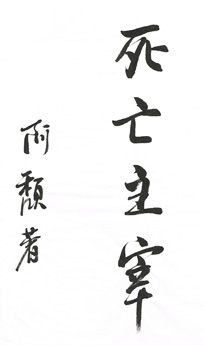 死亡主宰
雨颓著